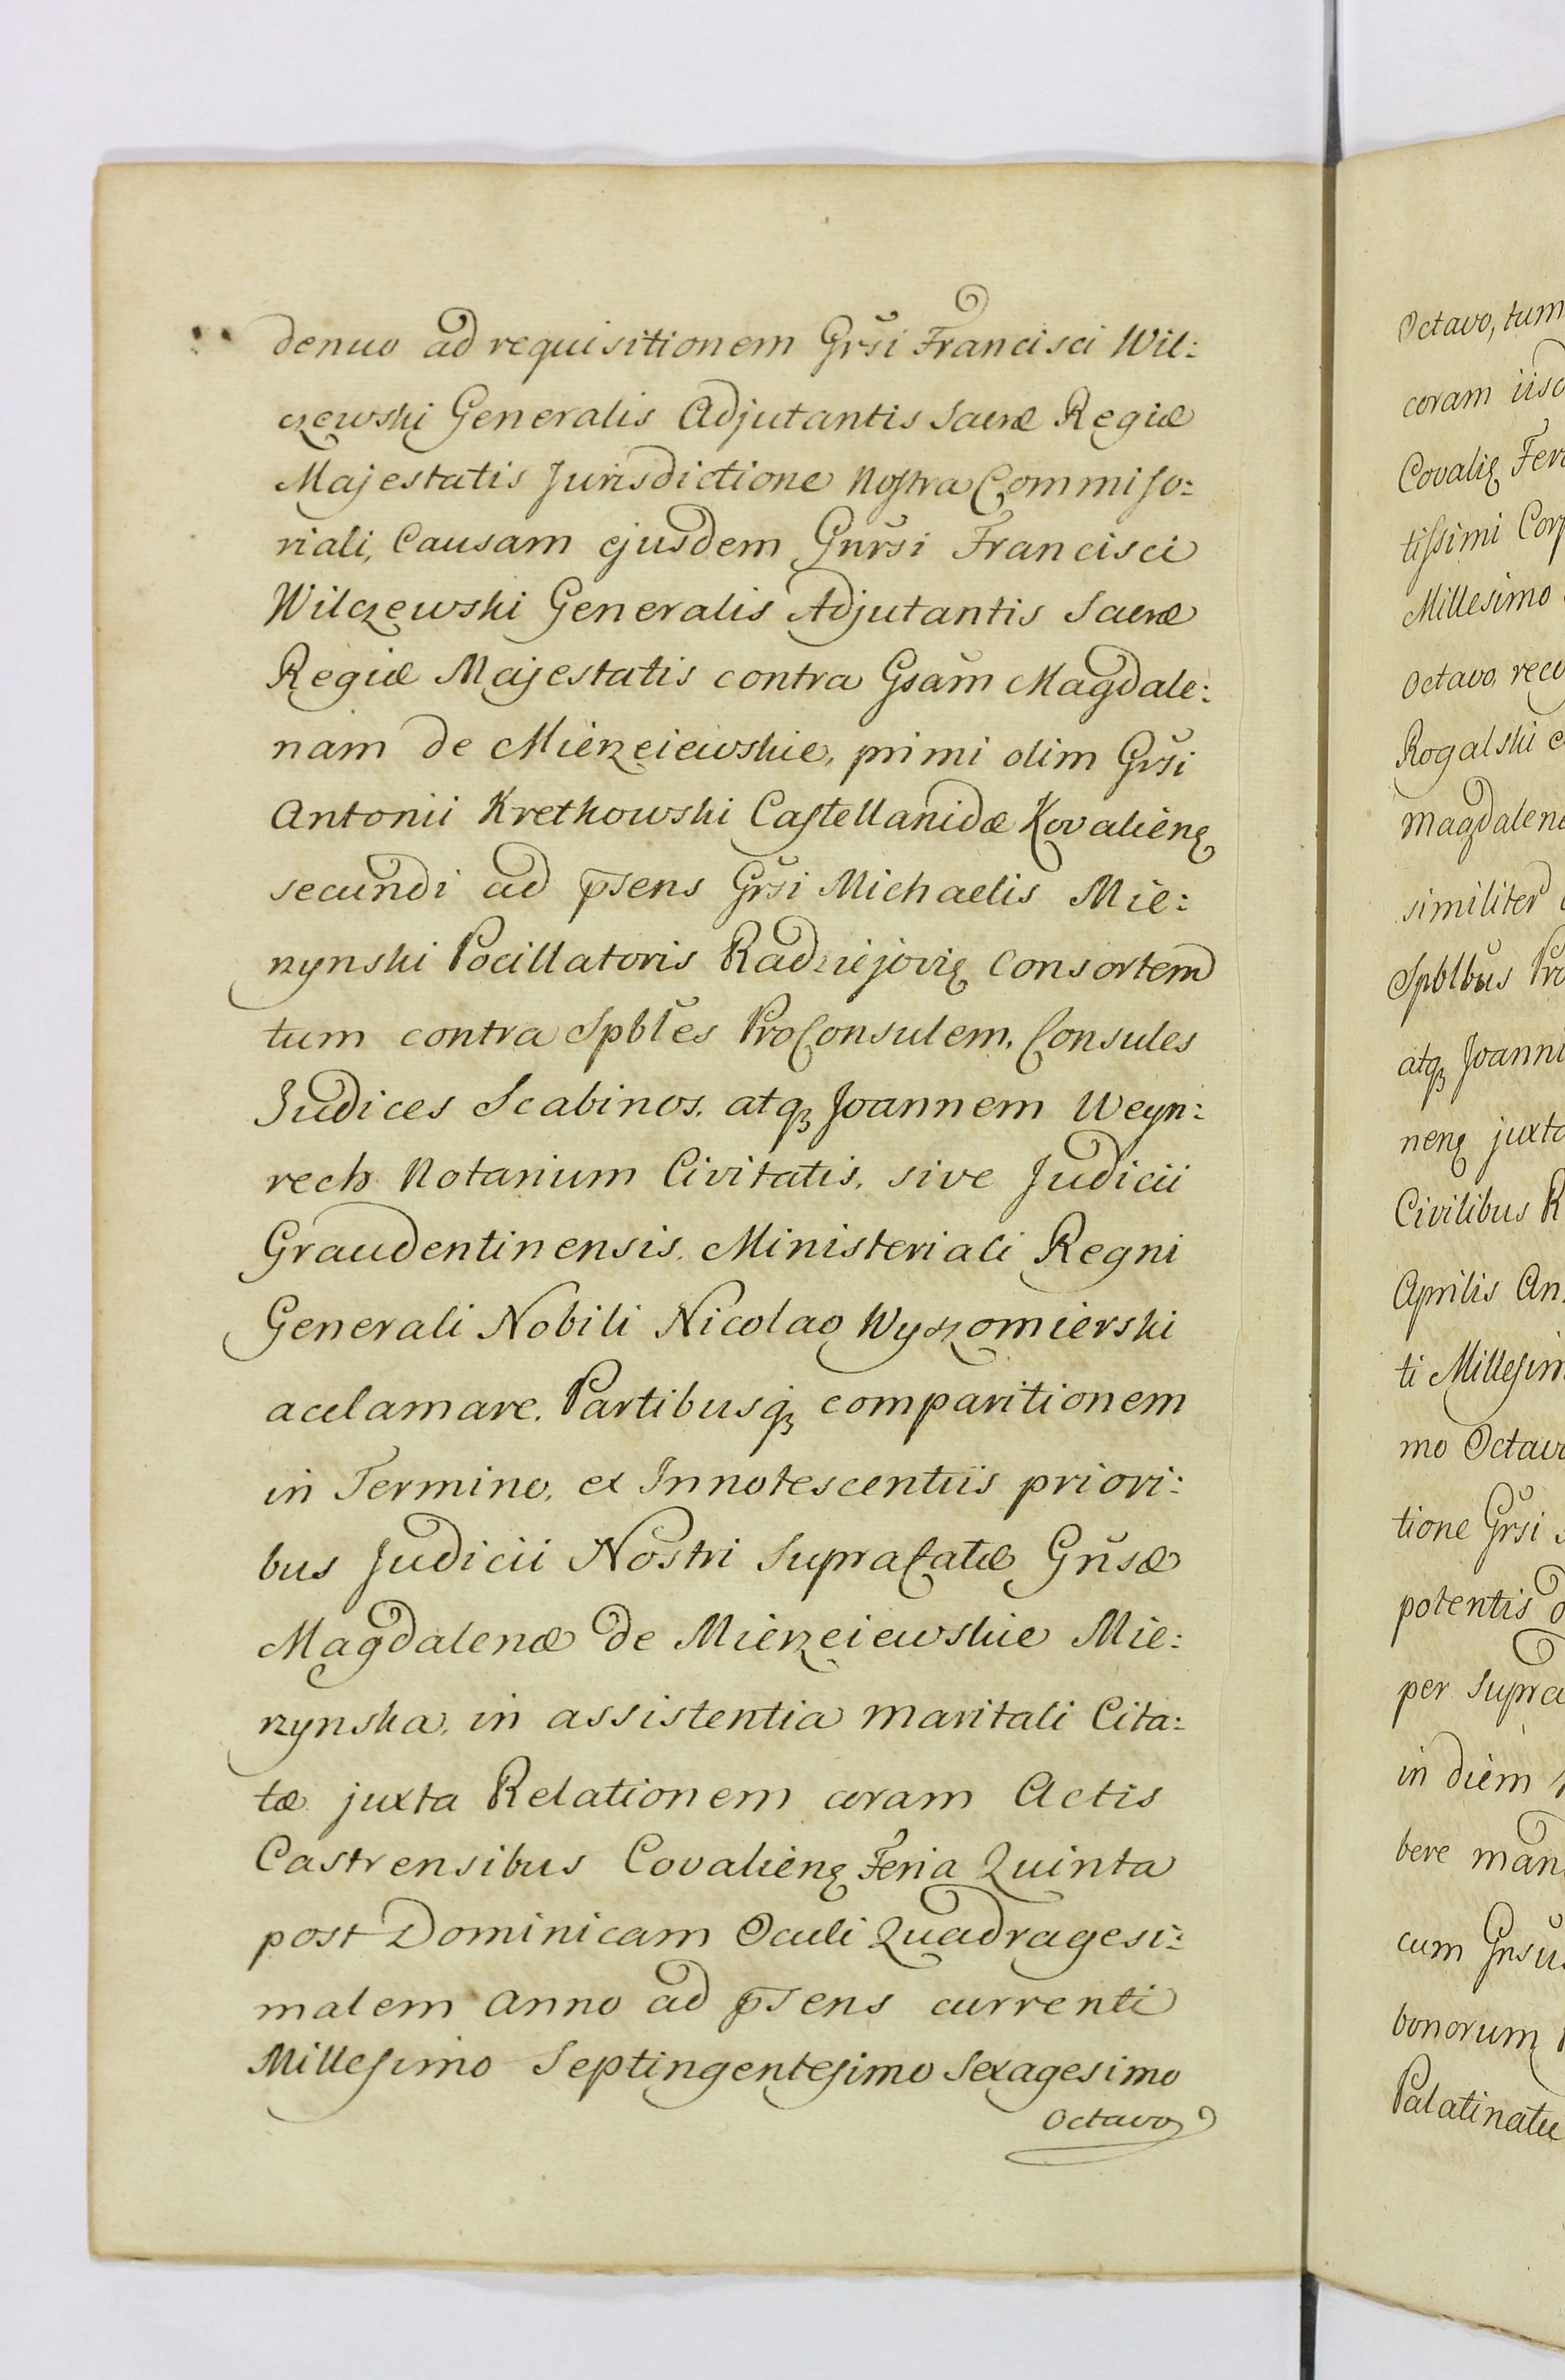 denuo ad requisitionem Grsi Francisci Wil:
czewski Generalis Adjutantis Sacræ Regiæ
Majestatis Jurisdictione Nostra Commisso:
riali, Causam ejusdem Gnrsi Francisci
Wilczewski Generalis Adjutantis Sacræ
Regiæ Majestatis contra Gsam Magdale:
nam de Mierzeiewskie, primi olim Grsi
Antonii Kretkowski Castellanidæ Kovalienę
secundi ad p̄sens Grsi Michaelis Mie:
rzynski Pocillatoris Radziejovię Consortem
tum contra Spbles ProConsulem, Consules
Judices Scabinos, atqȝ Joannem Weyn:
rech Notarium Civitatis, sive Judicii
Graudentinensis, Ministeriali Regni
Generali Nobili Nicolao Wyszomierski
aclamare, Partibusqȝ comparitionem
in Termino, ex Innotescentiis priori:
bus Judicii Nostri Supracatæ Gnsæ
Magdalenæ de Mierzeiewskie Mie:
rzynska, in assistentia maritali Cita:
tæ juxta Relationem coram Actis
Castrensibus Covalienę Feria Quinta
post Dominicam Oculi Quadragesi:
malem Anno ad p̄sens currenti
Millesimo Septingentesimo Sexagesimo
Octavo
Octavo, tum
coram iisd
Covalię Feri
tissimi Corp
Millesimo
Octavo, reco
Rogalski c
Magdalene
similiter
Spblbus Pro
atqȝ Joanni
nenę juxta
Civilibus R
Aprilis An
ti Millesim
mo Octavo
tione Grsi
potentis
per Supra
in diem
bere man
cum Gnsu
bonorum
Palatinatu